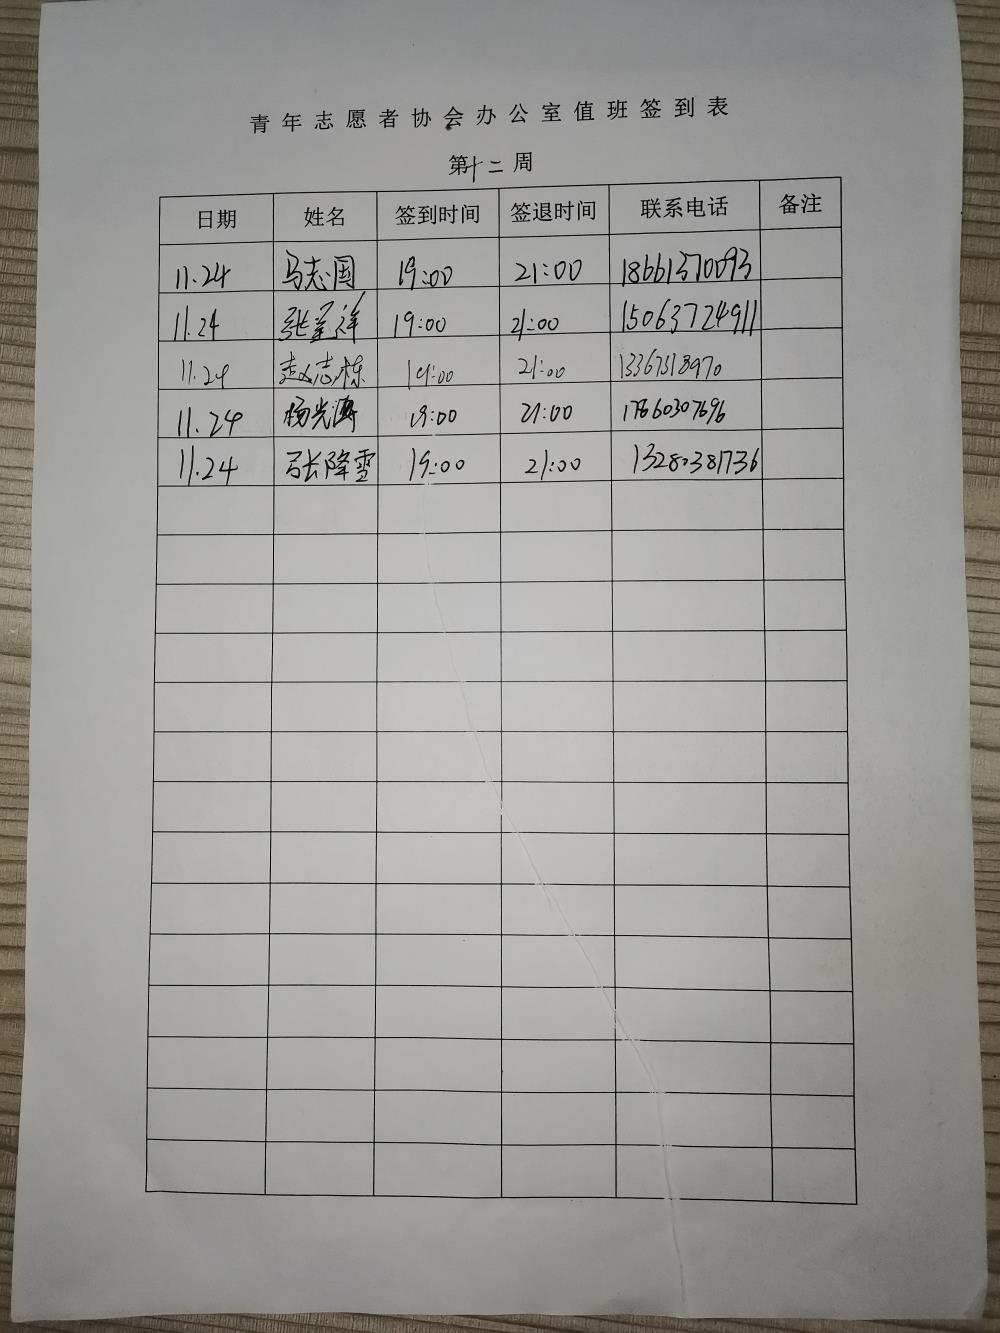 青年志愿者协会办公室值班签到表
第十二周
日期 姓名 签到时间 签退时间 联系电话 备注
11.24 马志国 19:00 21:00 18661370093
11.24 19:00 21:00 15063724911
11.24 赵志栋 19:00 21:00 13367518970
11.24 杨光涛 19:00 21:00 17860307696
11.24 张降雪 19:00 21:00 13280381736